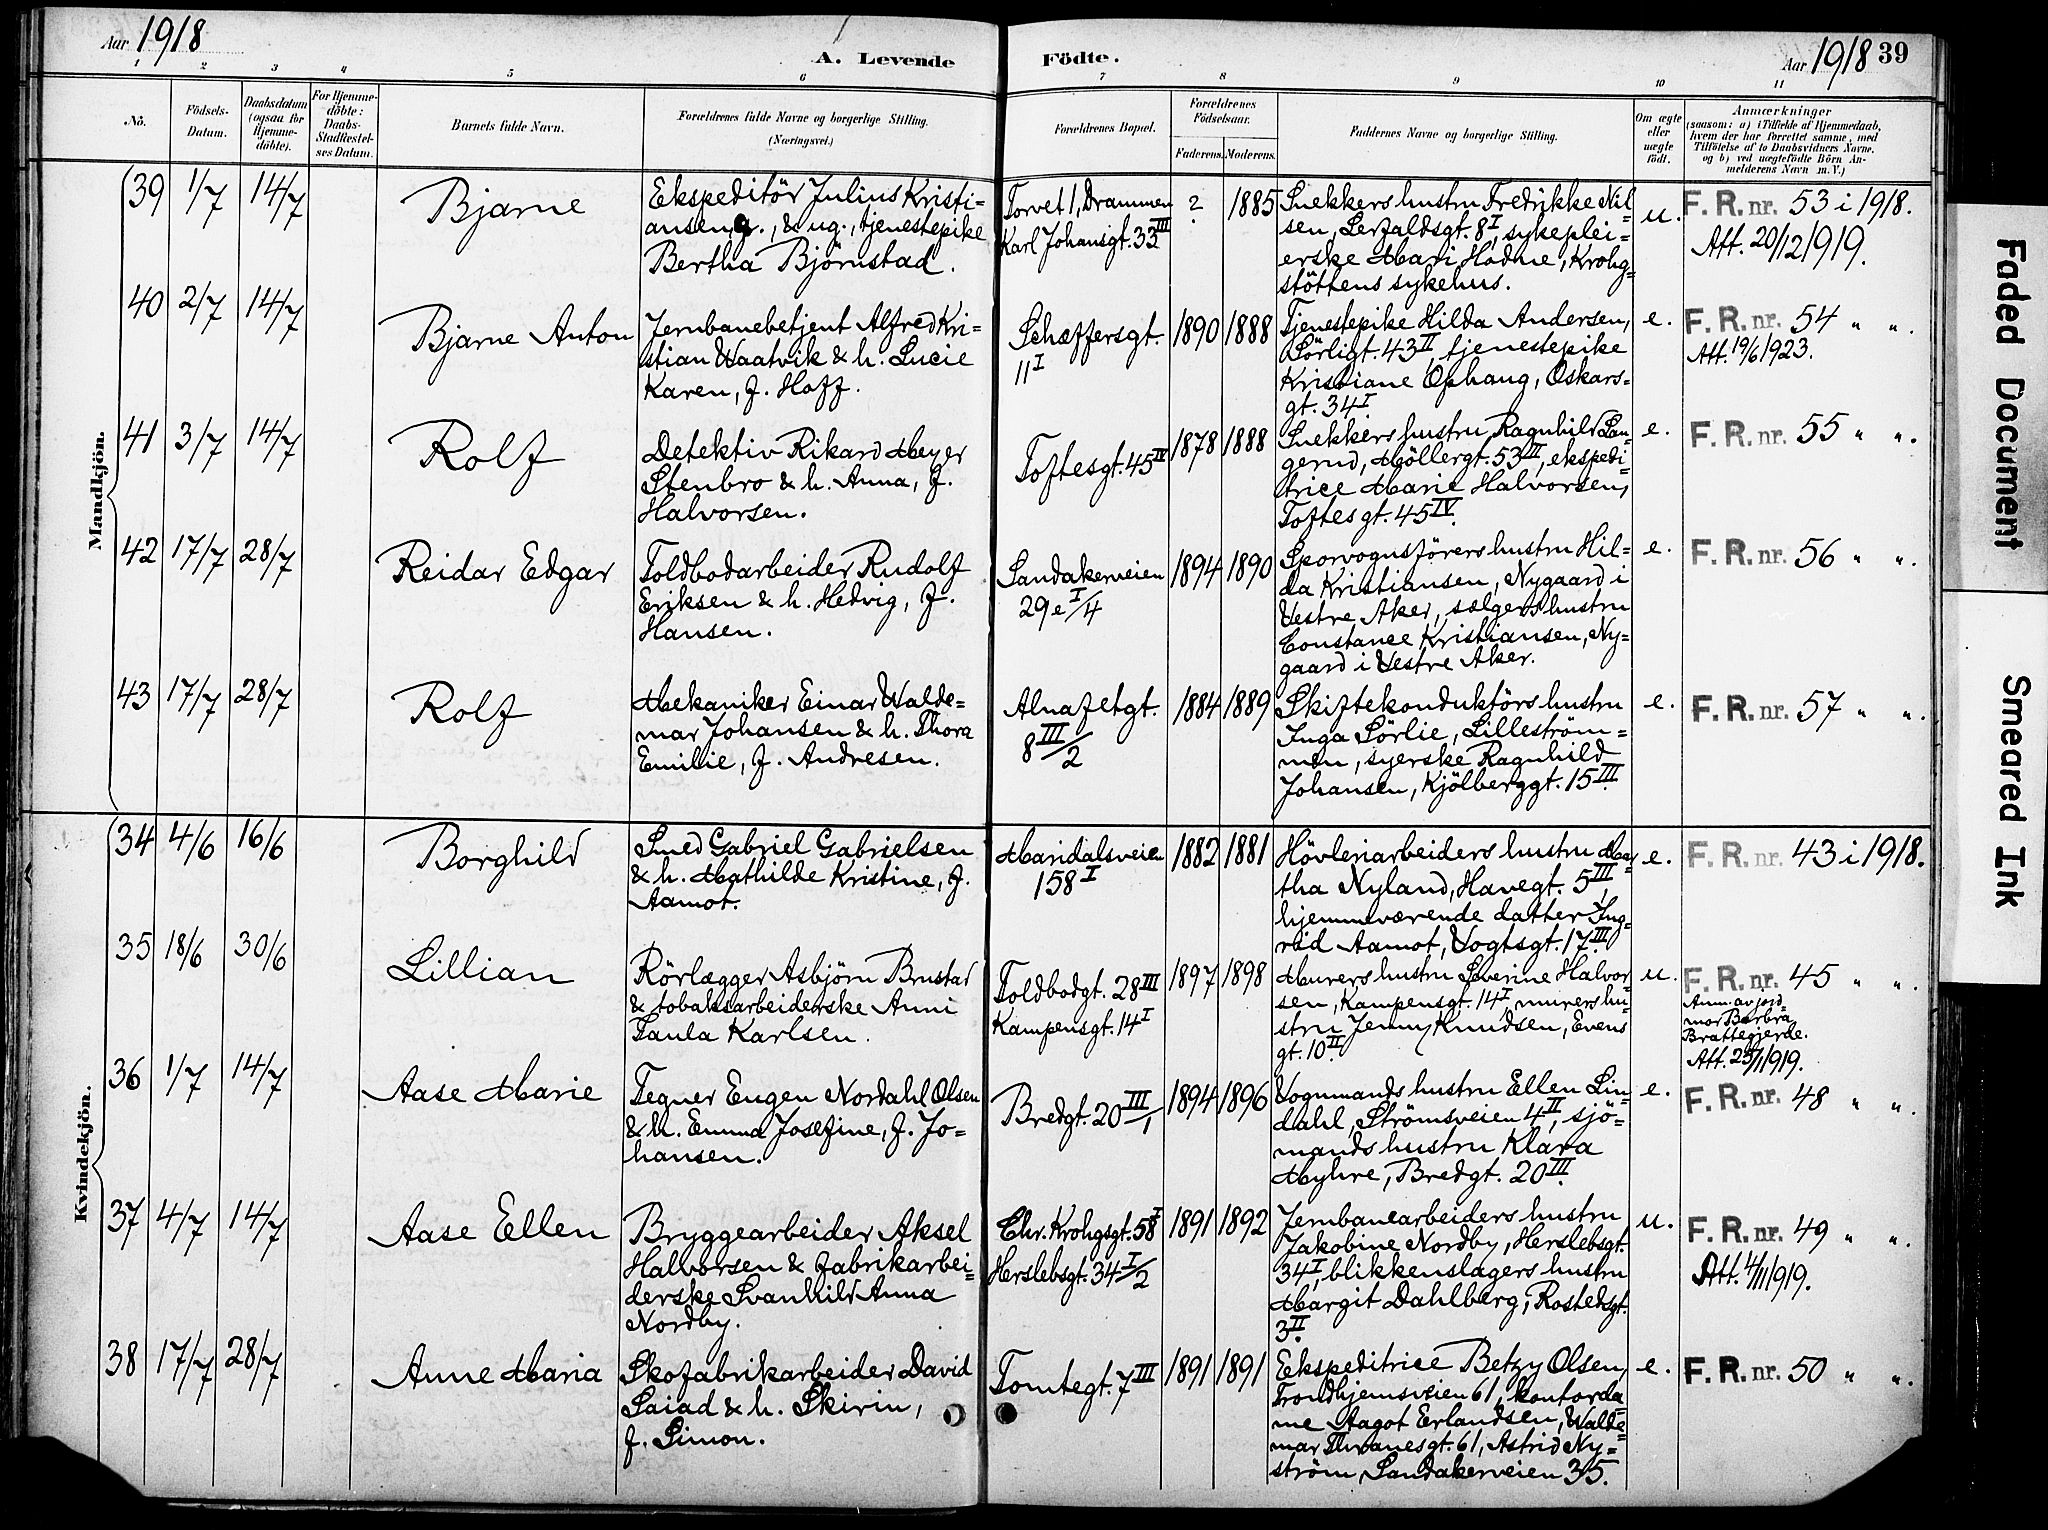 Aar 1918
A. Levende Födte.
Aar 1918 39
1 2 3 4 5 6 7 8 9 10 11
Nö.
Födsels-
Datum.
Daabsdatum
(ogsaa for
Hjemme-
döbte).
For Hjemme-
döbte:
Daabs-
Stadfæstel-
ses Datum.
Barnets fulde Navn.
Forældrenes fulde Navne og borgerlige Stilling.
(Næringsvei.)
Forældrenes Bopæl.
Forældrenes
Födselsaar.
Faderens. Moderens.
Faddernes Navne og borgerlige Stilling.
Om ægte
eller
uægte
födt.
Anmærkninger
(saasom: a) i Tilfælde af Hjemmedaab,
hvem der har forrettet samme, med
Tilföielse af to Daabsvidners Navne.
og b) ved uægtefödte Börn An-
melderens Navn m. V.)
Mandkjön.
39 1/7 14/7
Bjarne
Ekspeditör Julius Kristi-
ansen, g., & ug., tjenestepike
Bertha Björnstad.
Torvet 1, Drammen
Karl Johansgt. 33 III
? 1885
Snekkers hustru Fredrikke Nil-
sen, 8 I, sykeplei-
erske Mari Hodne, Krohg-
stöttens sykehus.
u.
F. R. nr. 53 i 1918.
Att. 20/12 1919.
40 2/7 14/7
Bjarne Anton
Jernbanebetjent Alfred Kri-
stian Waatvik & h. Lucie
Karen, f. Hoff.
Schæffersgt.
11 I
1890 1888
Tjenestepike Hilda Andersen,
Sörligt. 43 II, tjenestepike
Kristiane Ophaug, Oskars-
gt. 34 I
e.
F. R. nr. 54 " ".
Att. 19/6 1923.
41 3/7 14/7
Rolf
Detektiv Rikard Meyer
Stenbro & h. Anna, f.
Halvorsen.
Toftesgt. 45 IV
1878 1888
Snekkers hustru Ragnhild Lan-
gerud, Möllergt. 53 II, ekspedi-
trice Marie Halvorsen,
Toftesgt. 45 IV.
e.
F. R. nr. 55 " ".
42 17/7 28/7
Reidar Edgar
Toldbodarbeider Rudolf
Eriksen & h. Hedvig, f.
Hansen.
Sandakerveien
29 e I/4
1894 1890
Sporvognsförers hustru Hil-
da Kristiansen, Nygaard i
Vestre Aker, sælgers hustru
Constance Kristiansen, Ny-
gaard i Vestre Aker.
e.
F. R. nr. 56 " ".
43 17/7 28/7
Rolf
Mekaniker Einar Walde-
mar Johansen & h. Thora
Emilie, f. Andresen.
Alnafetgt.
8 III/2
1884 1889
Skiftekonduktörs hustru
Inga Sörlie, Lilleström-
men, syerske Ragnhild
Johansen, Kjölberggt. 15 III.
e.
F. R. nr. 57 " ".
Kvindekjön.
34 4/6 16/6
Borghild
Smed Gabriel Gabrielsen
& h. Mathilde Kristine, f.
Aamot.
Maridalsveien
158 I
1882 1881
Hövleriarbeiders hustru Mar-
tha Nyland, Havegt. 5 III,
hjemmeværende datter Ing-
rid Aamot, Vogtsgt. 17 III.
e.
F. R. nr. 43 i 1918.
35 18/6 30/6
Lillian
Rörlægger Asbjörn Brustad
& tobaksarbeiderske Anni
Paula Karlsen.
Toldbodgt. 28 III
Kampensgt. 14 I
1897 1898
Murers hustru Severine Halvor-
sen, Kampensgt. 14 I, murers hu-
stru Jenny Knudsen, Evens
gt. 10 II.
u.
F. R. nr. 45 " ".
Anm. av jord-
mor Barbra
Brattegjerde.
Att. 25/1 1919.
36 1/7 14/7
Aase Marie
Tegner Eugen Nordahl Olsen
& h. Emma Josefine, f. Jo-
hansen.
Bredgt. 20 III/1
1894 1896
Vognmands hustru Ellen Lin-
dahl, Strömsveien 4 II, sjö-
mands hustru Klara
Myhre, Bredgt. 20 III.
e.
F. R. nr. 48 " ".
37 4/7 14/7
Aase Ellen
Bryggearbeider Aksel
Halvorsen & fabrikarbei-
derske Svanhild Anna
Nordby.
Chr. Krohgsgt. 58 I
Herslebsgt. 34 I/2
1891 1892
Jernbanearbeiders hustru
Jakobine Nordby, Herslebsgt.
34 I, blikkenslagers hustru
Margit Dahlberg, Rostedsgt.
3 II.
u.
F. R. nr. 49 " ".
Att. 4/11 1919.
38 17/7 28/7
Anne Maria
Skofabrikarbeider David
Saiad & h. Skirin,
f. Simon.
Tomtegt. 7 III
1891 1891
Ekspeditrice Betzy Olsen,
Trondhjemsveien 61, kontorda-
me Aagot Erlandsen, Walde-
mar Thranesgt. 61, Astrid Ny-
ström, Sandakerveien 35.
e.
F. R. nr. 50 " ".
Faded Document
Smeared Ink